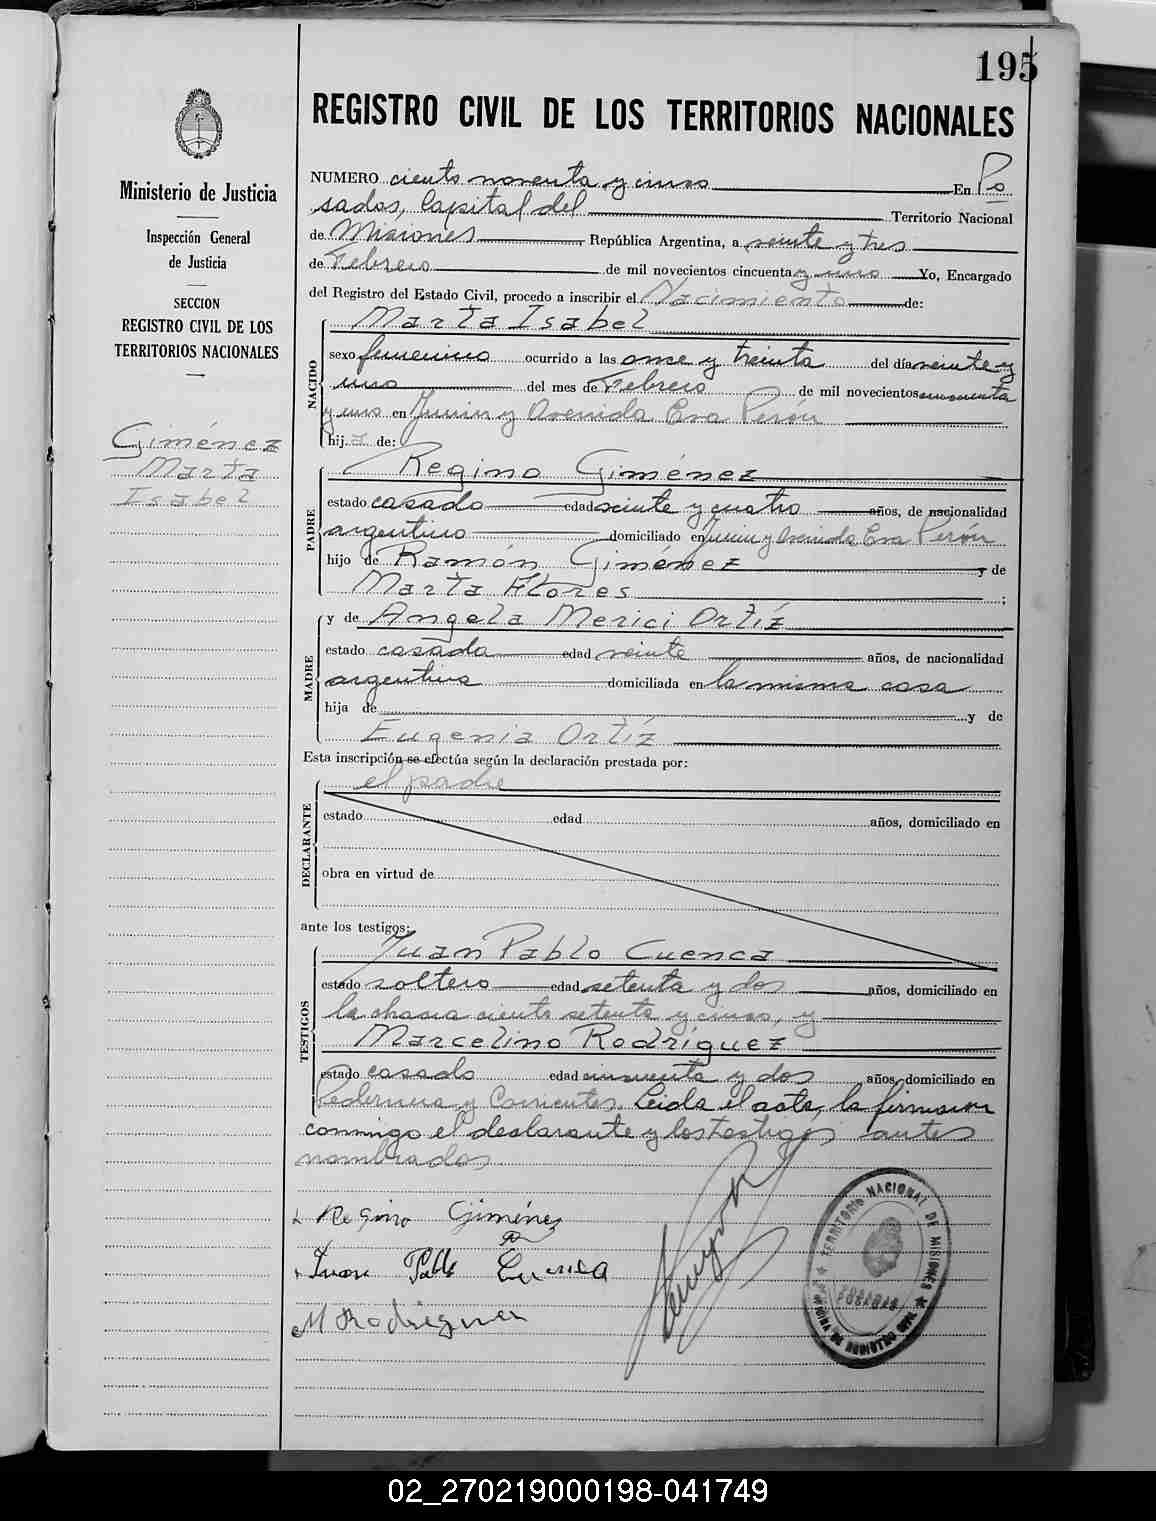 195
REGISTRO CIVIL DE LOS TERRITORIOS NACIONALES
Ministerio de Justicia
Inspección General
de Justicia
SECCION
REGISTRO CIVIL DE LOS
TERRITORIOS NACIONALES
Giménez
Marta
Isabel
NUMERO ciento noventa y cinco En Po
sadas, Capital del Territorio Nacional
de Misiones República Argentina, a veinte y tres
de Febrero de mil novecientos cincuenta y uno Yo, Encargado
del Registro del Estado Civil, procedo a inscribir el Nacimiento de:
NACIDO
Marta Isabel
sexo femenino ocurrido a las once y treinta del día veinte y
uno del mes de Febrero de mil novecientos cincuenta
y uno en Junin y Avenida Eva Perón
hija de:
PADRE
Regino Giménez
estado casado edad veinte y cuatro años, de nacionalidad
argentino domiciliado en Junin y Avenida Eva Perón
hijo de Ramón Giménez y de
Marta Flores ;
MADRE
y de Angela Merici Ortíz
estado casada edad veinte años, de nacionalidad
argentina domiciliada en la misma casa
hija de y de
Eugenia Ortíz
Esta inscripción se efectúa según la declaración prestada por:
el padre
DECLARANTE
estado edad años, domiciliado en
obra en virtud de
ante los testigos:
TESTIGOS
Juan Pablo Cuenca
estado soltero edad setenta y dos años, domiciliado en
la chacra ciento setenta y cinco, y
Marcelino Rodríguez
estado casado edad cincuenta y dos años, domiciliado en
Pedernera y Corrientes. Leida el acta, la firmaron
conmigo el declarante y los testigos antes
nombrados
Regino Giménez
Juan Pablo Cuenca
M Rodriguez
TERRITORIO NACIONAL DE MISIONES
OFICINA DE REGISTRO CIVIL
02_270219000198-041749